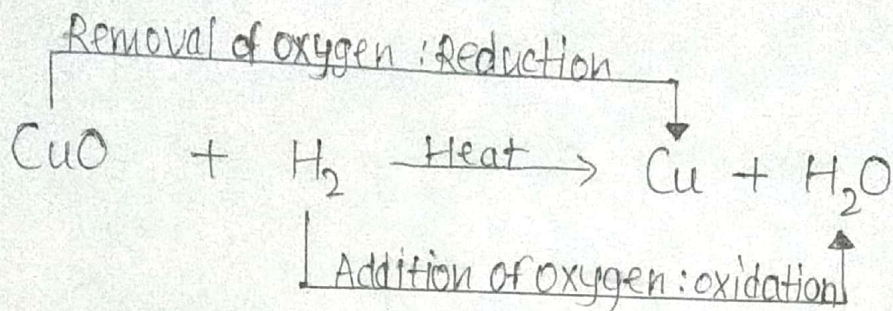 Removal of oxygen : Reduction
CuO + H₂ Heat → Cu + H₂O
Addition of oxygen : oxidation